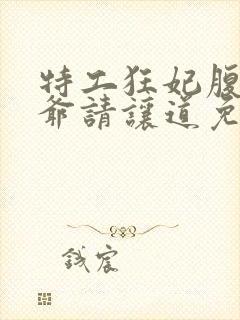 特工狂妃腹
爺請讓道免
鋮宸